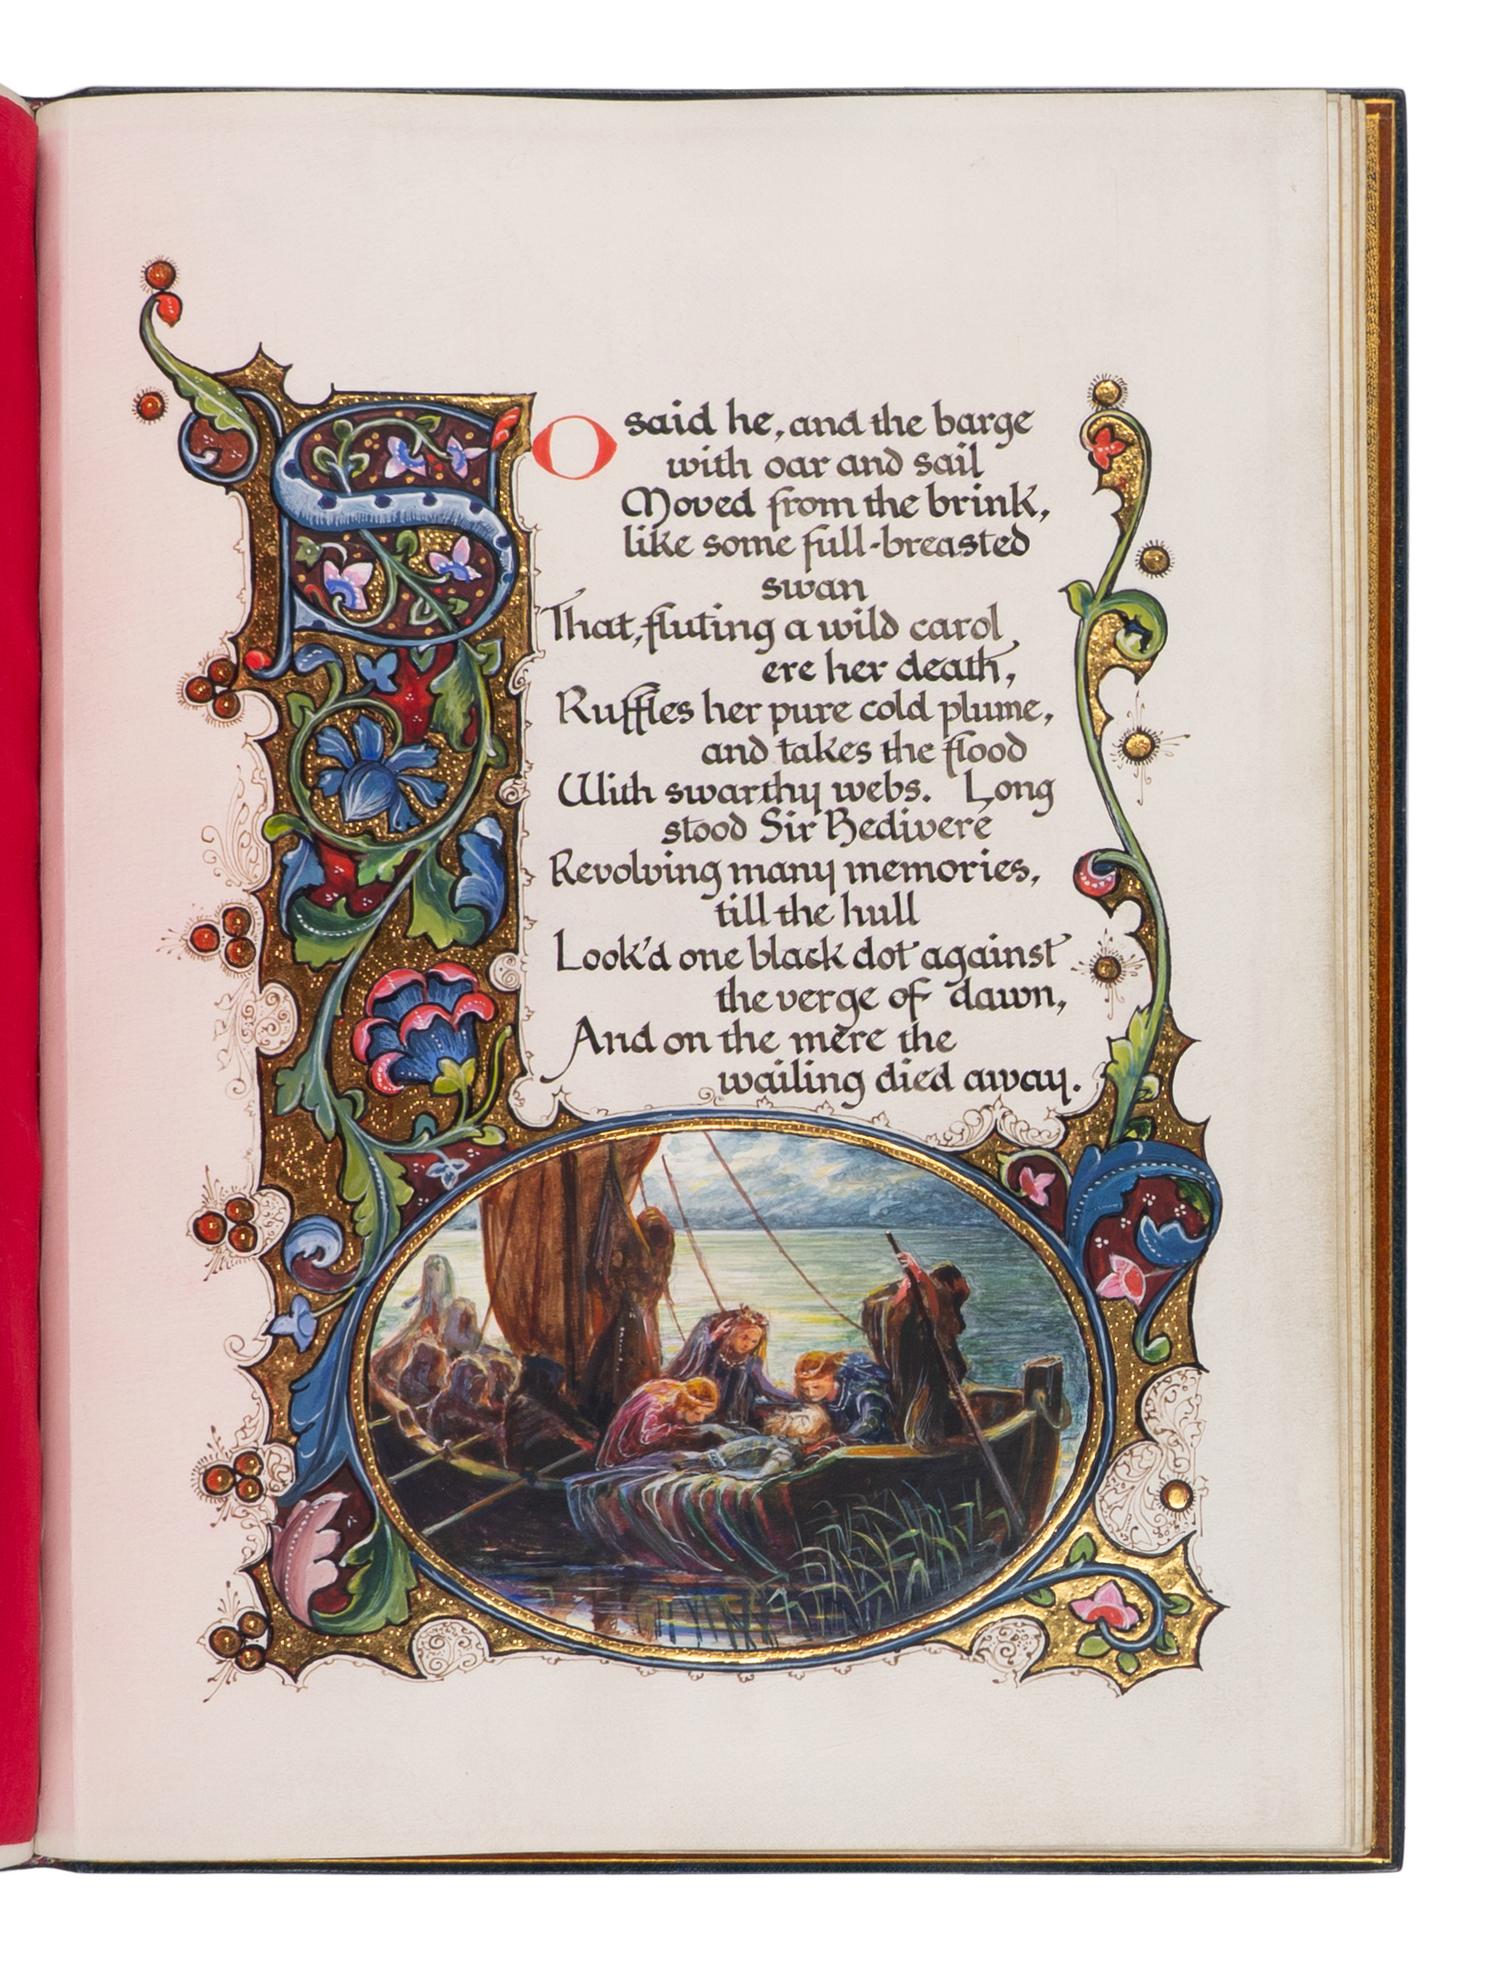 SO said he, and the barge
with oar and sail
Moved from the brink,
like some full-breasted
swan
That, fluting a wild carol
ere her death,
Ruffles her pure cold plume,
and takes the flood
With swarthy webs. Long
stood Sir Bedivere
Revolving many memories,
till the hull
Look'd one black dot against
the verge of dawn,
And on the mere the
wailing died away.